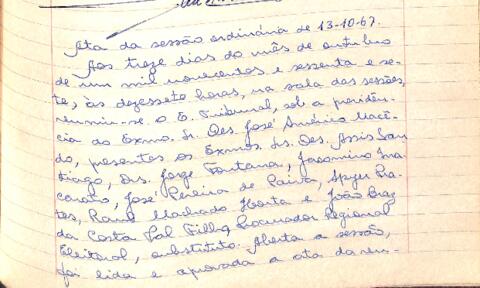 Ata da sessão ordinária de 13-10-67.
Aos treze dias do mês de outubro
de um mil novecentos e sessenta e se-
te, às dezessete horas, na sala das sessões,
reuniu-se o E. Tribunal, sob a presidên-
cia do Exmo. Sr. Des. José Américo Macê-
do, presentes os Exmos. Srs. Des. Assis San-
tiago, Drs. Jorge Fontana, Jacomino Ina-
carato, José Pereira de Paiva, Pra-
tes, Raul Machado Horta e João Braz
da Costa Val Filho, Procurador Regional
Eleitoral, substituto. Aberta a sessão,
foi lida e aprovada a ata da reu-